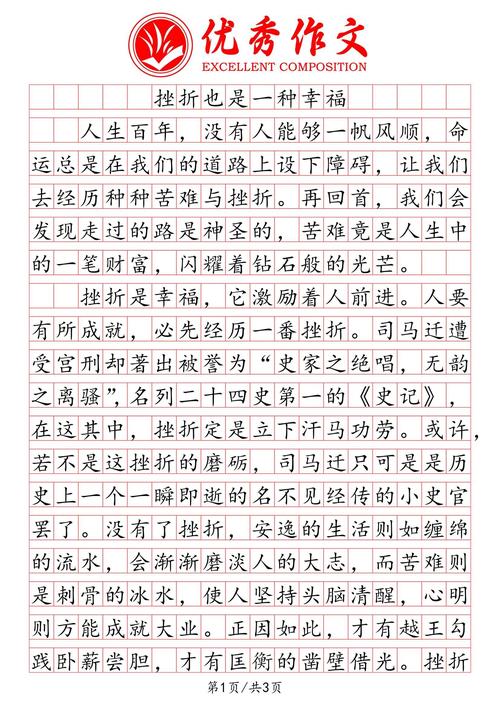 优秀作文
EXCELLENT COMPOSITION
挫折也是一种幸福
人生百年，没有人能够一帆风顺，命
运总是在我们的道路上设下障碍，让我们
去经历种种苦难与挫折。再回首，我们会
发现走过的路是神圣的，苦难竟是人生中
的一笔财富，闪耀着钻石般的光芒。
挫折是幸福，它激励着人前进。人要
有所成就，必先经历一番挫折。司马迁遭
受宫刑却著出被誉为“史家之绝唱，无韵
之离骚”，名列二十四史第一的《史记》，
在这其中，挫折定是立下汗马功劳。或许，
若不是这挫折的磨砺，司马迁只可是是历
史上一个一瞬即逝的名不见经传的小史官
罢了。没有了挫折，安逸的生活则如缠绵
的流水，会渐渐磨淡人的大志，而苦难则
是刺骨的冰水，使人坚持头脑清醒，心明
则方能成就大业。正因如此，才有越王勾
践卧薪尝胆，才有匡衡的凿壁借光。挫折
第1页/共3页